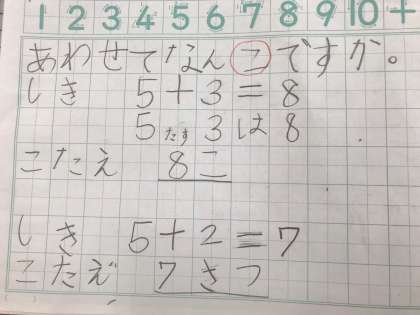 1 2 3 4 5 6 7 8 9 10 +
あわせてなんこですか。
しき 5+3=8
5たす3は8
こたえ 8こ
しき 5+2=7
こたえ 7さつ